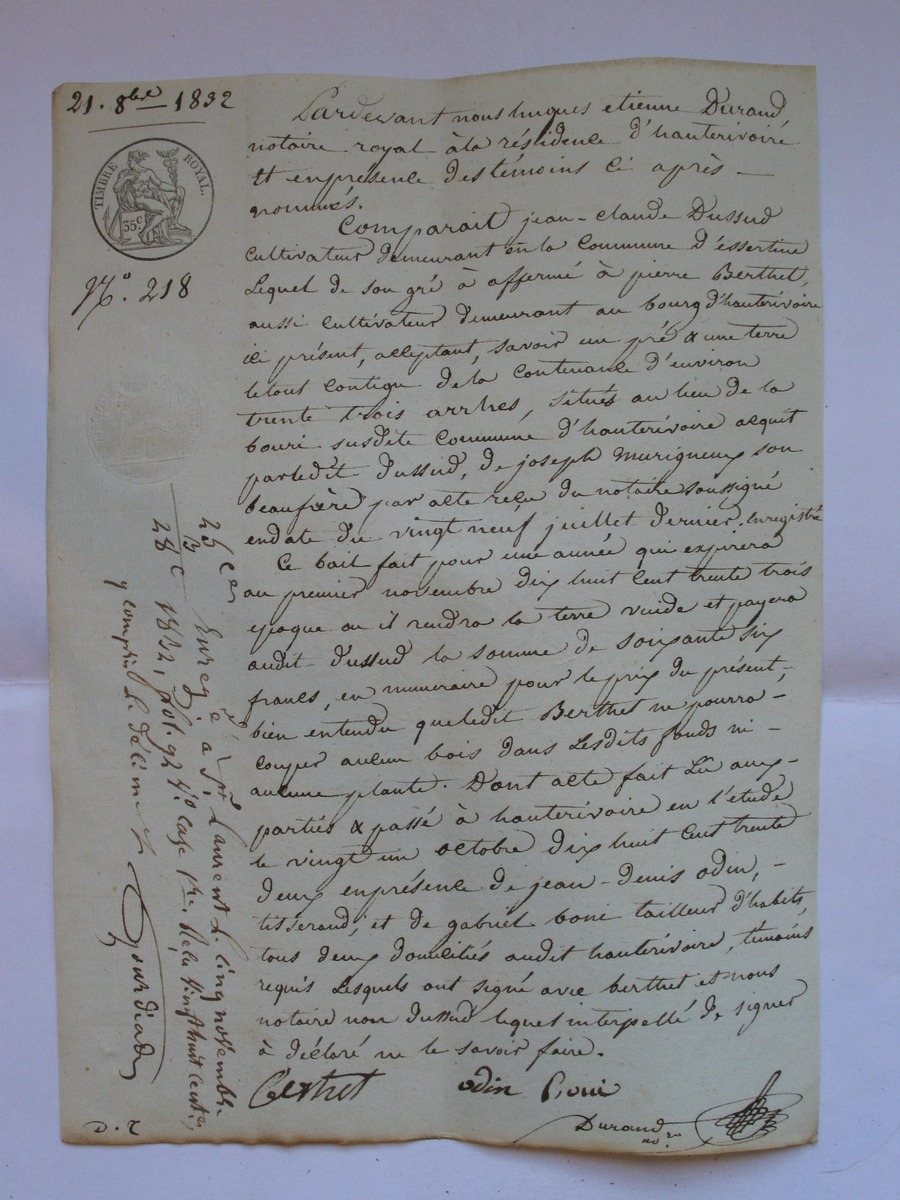 21. 8bre 1832
TIMBRE ROYAL.
35c
N.o 218
Pardevant nous hugues etienne Durand,
notaire royal à la résidence d'hauterivoire
Et en presence des témoins ci après —
nommés.
Comparait jean-claude Dussud
cultivateur demeurant en la Commune d'essertine
Lequel de son gré à affermé à pierre Berthet,
aussi cultivateur demeurant au bourg d'hauterivoire
ici présent, acceptant, savoir un pré & une terre
le tout contigu de la contenance d'environ
trente trois arrhes, situés au lieu de la
bouri susdite Commune d'hauterivoire acquit
par ledit Dussud, de joseph Murigneux son
beaufrère par acte reçu du notaire soussigné
en date du vingt neuf juillet dernier. Enregistré
Ce bail fait pour une année qui expirera
au premier novembre dix huit cent trente trois
epoque ou il rendra la terre vuide et payera
audit Dussud la somme de soixante six
francs, en numeraire pour le prix du présent,
bien entendu que ledit Berthet ne pourra —
couper aucun bois dans Lesdits fonds ni —
aucune plante. Dont acte fait Lu aux —
parties & passé à hauterivoire en l'étude
le vingt un octobre dix huit cent trente
deux en présence de jean-denis odin, —
tisserand, et de gabriel boni tailleur d'habits,
tous deux domiciliés audit hauterivoire, témoins
requis Lesquels ont signé avec berthet et nous
notaire non Dussud lequel interpellé de signer
à déclaré ne le savoir faire.
Berthet odin Boni
Durand nore
Enregé à St Laurent L. cinq novembre
1832, fol. 92 Vo case 1re. Reçu vingt huit centes
y compris le décime
25 c
3
28 c